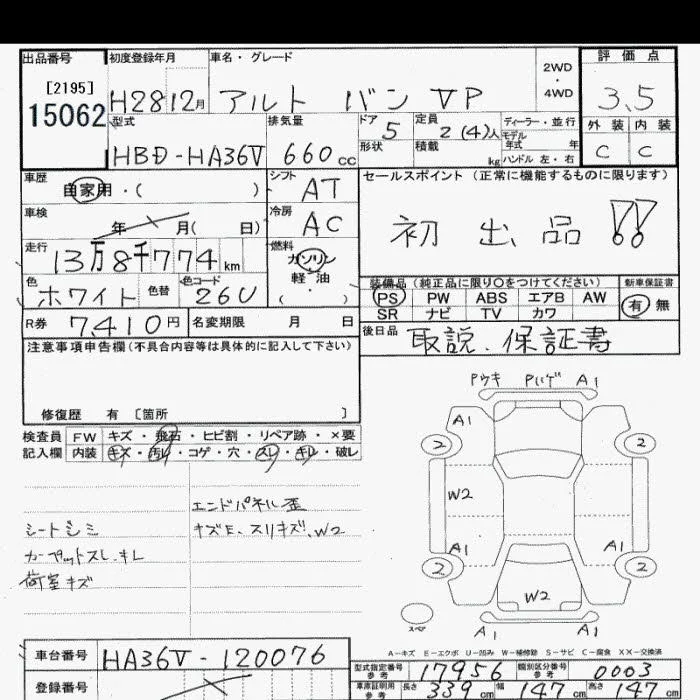 出品番号 初度登録年月 車名・グレード 2WD ・ 4WD 評価点
[2195] 15062 H28 12月 アルト バン VP 3.5
型式 排気量 ドア 5 定員 2(4)人 ディーラー・並行 外装 内装
HBD-HA36V 660cc 形状 積載 kg モデル年式 年 ハンドル 左・右 C C
車歴 自家用・( ) シフト AT セールスポイント (正常に機能するものに限ります)
車検 年 月( 日) 冷房 AC 初出品!!
走行 13万8千774km 燃料 ガソリン 軽油 ( )
色 ホワイト 色替 色コード 26U 装備品(純正品に限り○をつけてください) 新車保証書
PS PW ABS エアB AW 有 無
SR ナビ TV カワ
R券 7,410円 名変期限 月 日 後日品 取説、保証書
注意事項申告欄(不具合内容等は具体的に記入して下さい)
修復歴 有 [箇所 ]
検査員 FW キズ・飛石・ヒビ割・リペア跡・×要
記入欄 内装 キズ・汚レ・コゲ・穴・スレ・キレ・破レ
エンドパネル歪
シートシミ キズE、スリキズ、W2
カーペットスレ、キレ
荷室キズ
Pウキ Pハゲ A1
A1
2 2
W2
A1 A1
2 2
W2
スペア
A1 A1
A-キズ E-エクボ U-凹み W-補修跡 S-サビ C-腐食 XX-交換済
車台番号 HA36V-120076
型式指定番号 参考 17956 類別区分番号 参考 0003
登録番号
車庫証明用 参考 長さ 339cm 幅 147cm 高さ 147cm